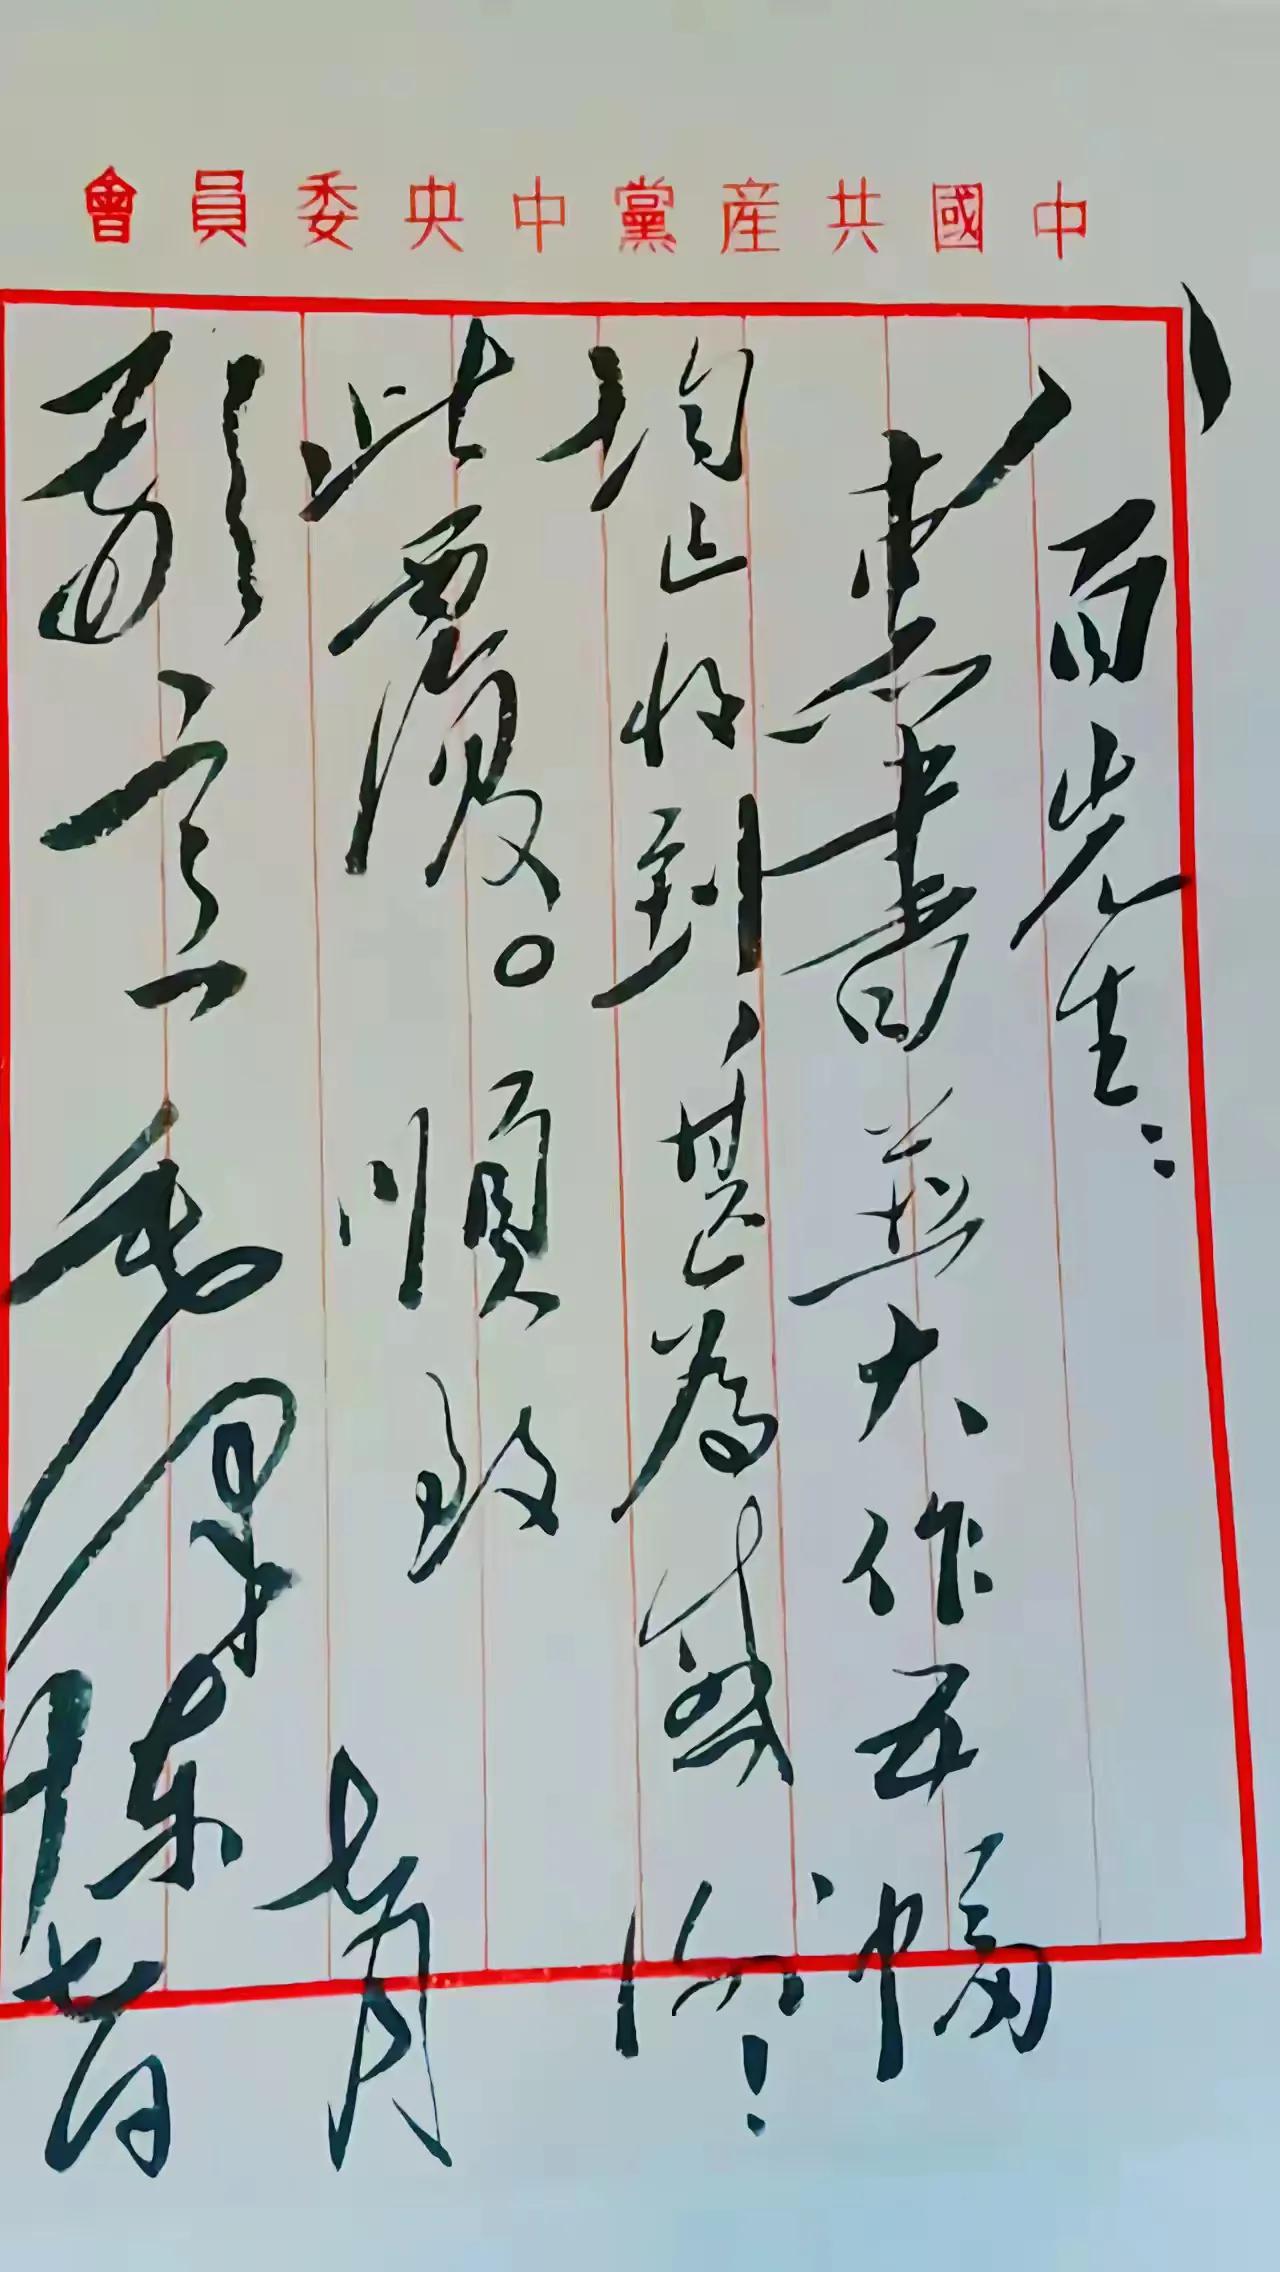 中國共産黨中央委員會
八百先生：
惠書並大作五幅
均已收到，甚為感謝！
此覆。順致
敬意
毛澤東
七月
七日